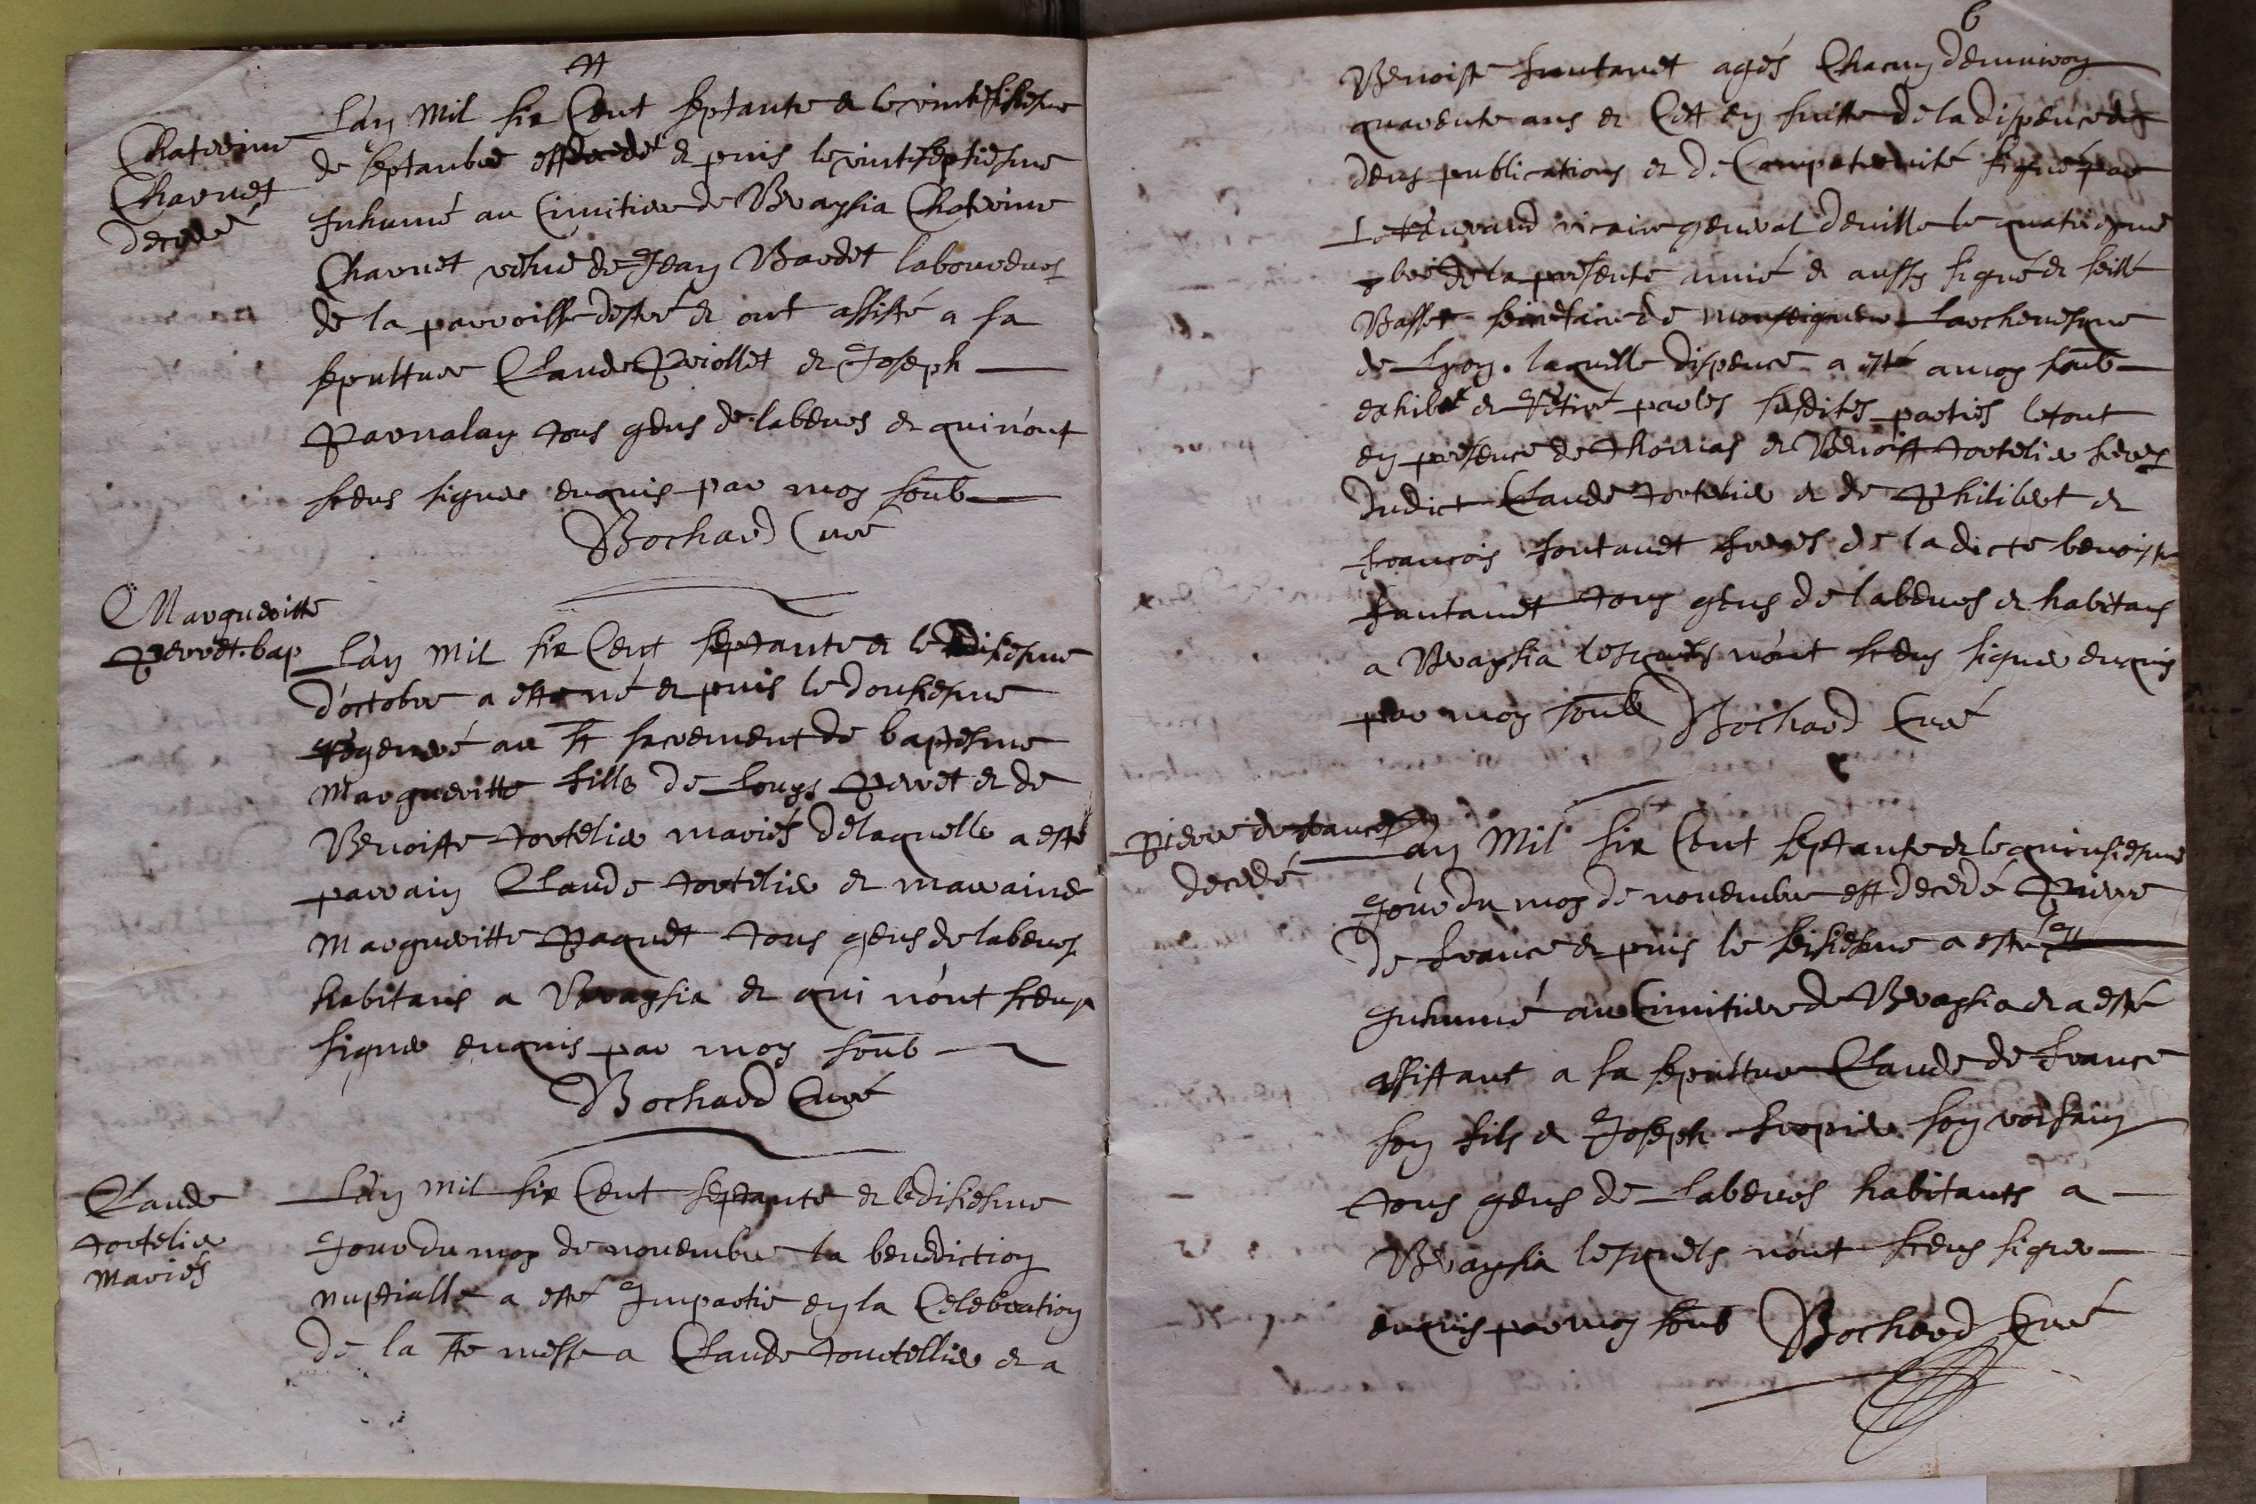 Chaterine
Charnet
decedé
L'an mil six cent septante & le vintesisiesme
de septambre est decedé & puis le vintseptiesme
Inhumé au Cimitiere de Bragsia Chaterine
Charnet vefue de Jean Bardet laboureur
de la parroisse & ont assisté a sa
sepulture Claude Priollet & Joseph
tous gens de labeurs & qui n'ont
sceus signer enquis par moy soub
Bochard Curé
Margueritte
Perret. bap
L'an mil six Cent septante & le disiesme
d'octobre a esté né & puis le dousiesme
regeneré au St sacrement de baptesme
Margueritte fille de Louys Perret & de
Benoiste tortelier mariés de laquelle a esté
parrain Claude tortelier & marraine
Margueritte Paquet tous gens de labeurs
habitans a Bragsia & qui n'ont sceus
signer enquis par moy soub
Bochard Curé
Claude
tortelier
mariés
L'an mil six Cent septante & le disiesme
Jour du moy de novembre la benediction
nuptialle a esté Impartie en la Celebration
de la Ste messe a Claude tourtellier & a
6
Benoiste fontanet agés Chacun d'environ
quarente ans & Cett en suitte de la dispence de
deus publications & de Compaternité signé par
vicaire general deville le quatriesme
de la presente année & aussy signé & seillé
Basset secretaire de monseigneur Larcheuesque
de Lyon. laquelle dispence a esté a moy soub
exhibé & retiré par les susdites parties le tout
en presence de thomas & Benoist tortelier freres
dudict Claude tortelier & de Philibert &
francois fontanet freres de la dicte benoiste
fantanet tous gens de labeurs & habitans
a Bragsia lesquels n'ont sceus signer enquis
par moy soub Bochard Curé
Pierre de france
decedé
L'an mil six Cent septante & le quinsiesme
Jour du moy de novembre est decedé Pierre
de france & puis le seisiesme a esté
Inhumé au Cimitiere de Bragsia & a esté
assistant a sa sepulture Claude de france
son fils & Joseph son voisain
tous gens de labeurs habitants a
Bragsia lesquels n'ont sceus signer
enquis par moy soub Bochard Curé